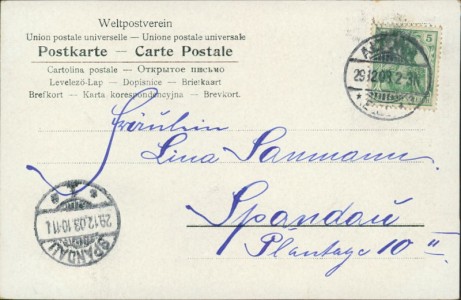 Weltpostverein
Union postale universelle — Unione postale universale
Postkarte — Carte Postale
Cartolina postale — Открытое письмо
Levelező-Lap — Dopisnice — Briefkaart
Brefkort — Karta korespondencyjna — Brevkort.
5
29.12.03.2-3N
Fräulein
Lina Sanmann.
Spandau
Plantage 10 II
29.12.03.10-11
SPANDAU